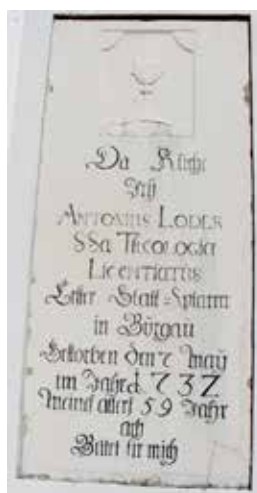 Da
Ich
ANTONIUS LODER
SSa THEOLOGIA
LICENTIATUS
in Bürgau
Gestorben den 7 May
im Jahr 1737
Meines alters 59 Jahr
ach
Bittet für mich